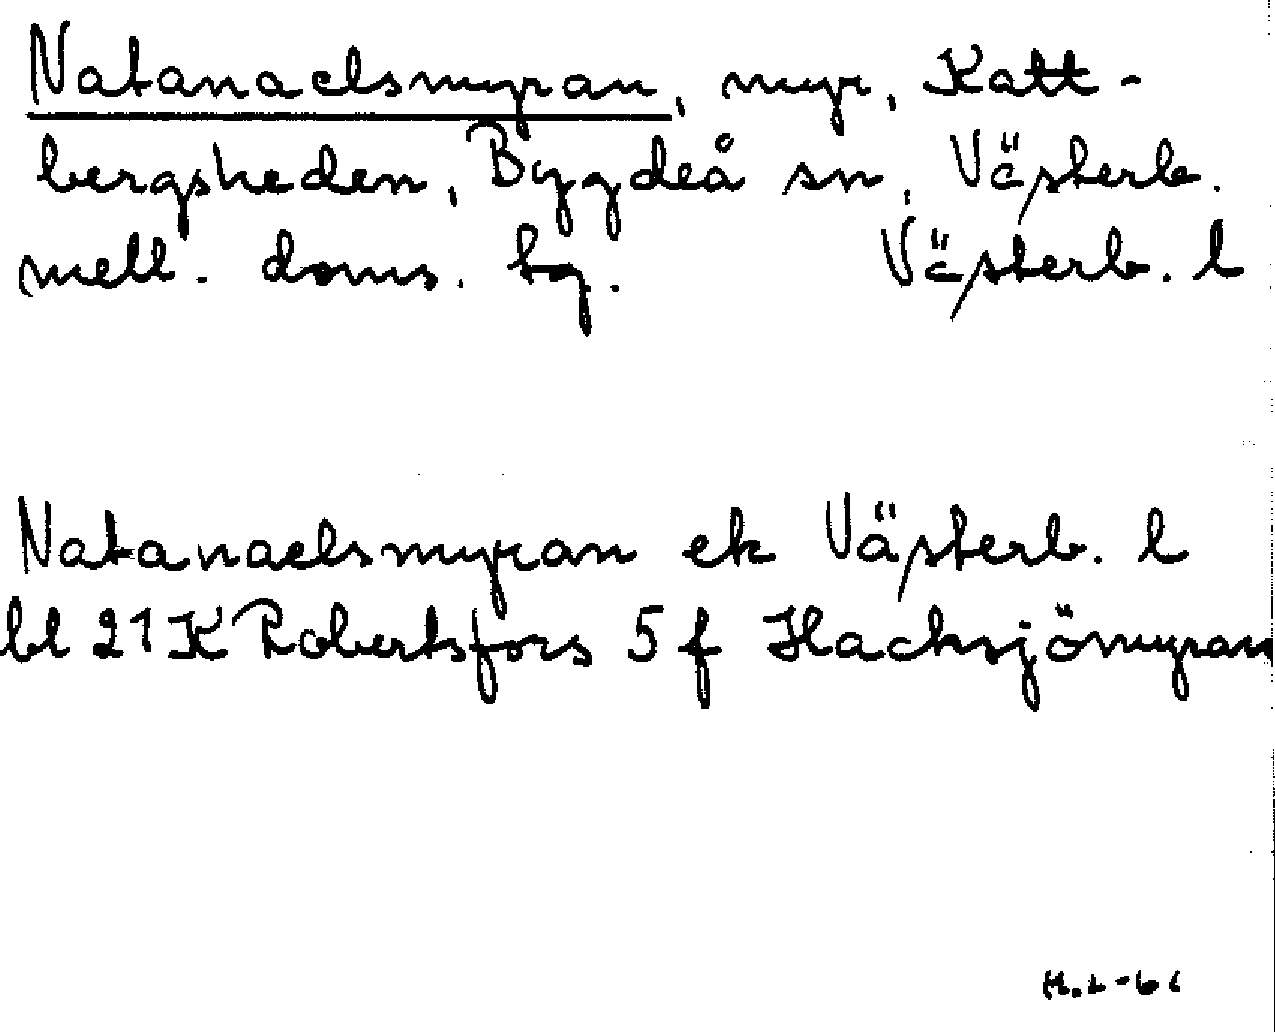 Natanaelsmyran, myr, Katt-
bergsheden, Bygdeå sn, Västerb.
mell. doms. tg. Västerb. l
Natanaelsmyran ek Västerb. l
bl 21 K Robertsfors 5 f Hacksjömyran